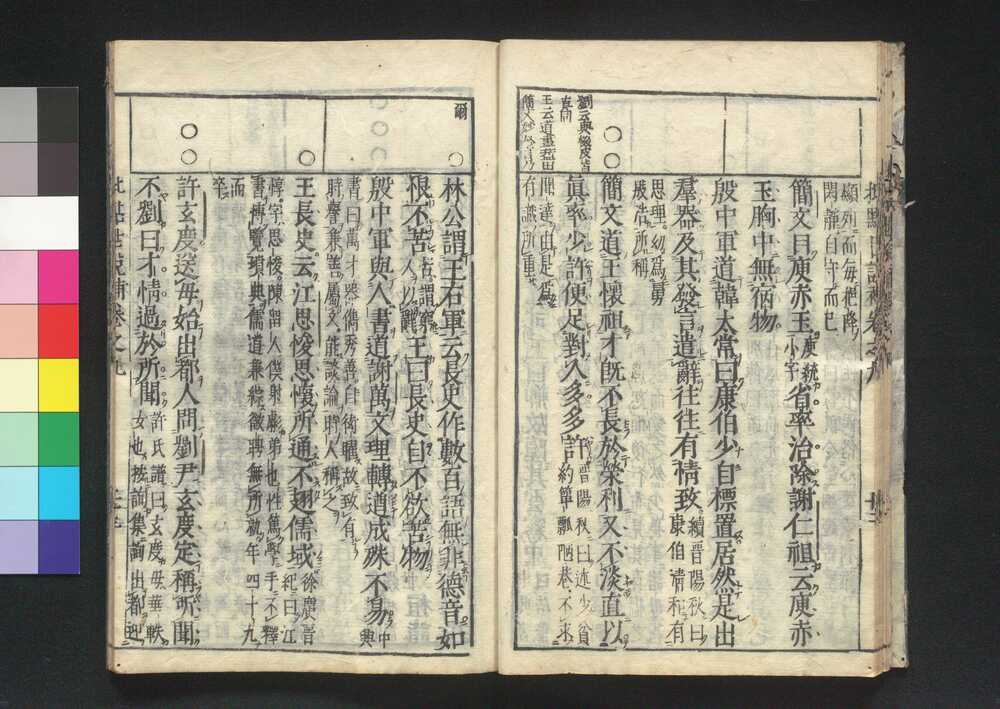 顯列而每挹降
閑靜自守而已
簡文目庾赤玉庾統小字省率治除謝仁祖云庾赤
玉胸中無宿物
殷中軍道韓太常曰康伯少自標置居然是出
羣器及其發言遣辭往往有情致續晉陽秋曰康伯清和有
思理幼爲舅
殷浩所稱
簡文道王懷祖才既不長於榮利又不淡直以
眞率少許便足對人多多許晉陽秋曰述少貧約簞瓢陋巷不求
聞達由是爲
有識所重
林公謂王右軍云長史作數百語無非德音如
恨不苦苦謂窮人以辭王曰長史自不欲苦物
殷中軍與人書道謝萬文理轉遒成殊不易中興
書曰萬才器儁秀善自衒曜故致有
時譽兼善屬文能談論時人稱之
王長史云江思悛思懷所通不翅儒域徐廣晉紀曰江
惇字思悛陳留人僕射虨弟也性篤學手不釋
書博覽墳典儒道兼綜徵聘無所就年四十九
而
卒
許玄度送母始出都人問劉尹玄度定稱所聞
不劉曰才情過於所聞許氏譜曰玄度母華軼
女也按詢集詢出都迎